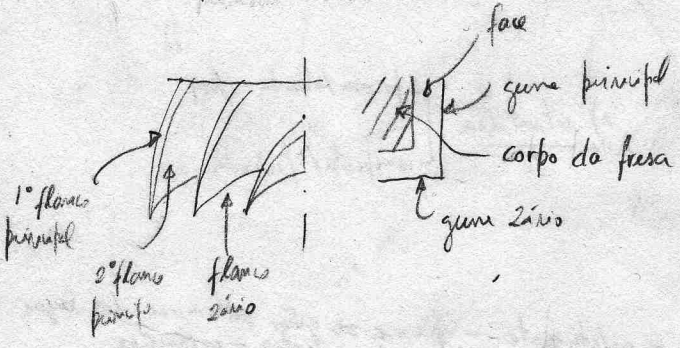 face
gume principal
corpo da fresa
gume 2ário
1º flanco
principal
2º flanco
flanco
2ário